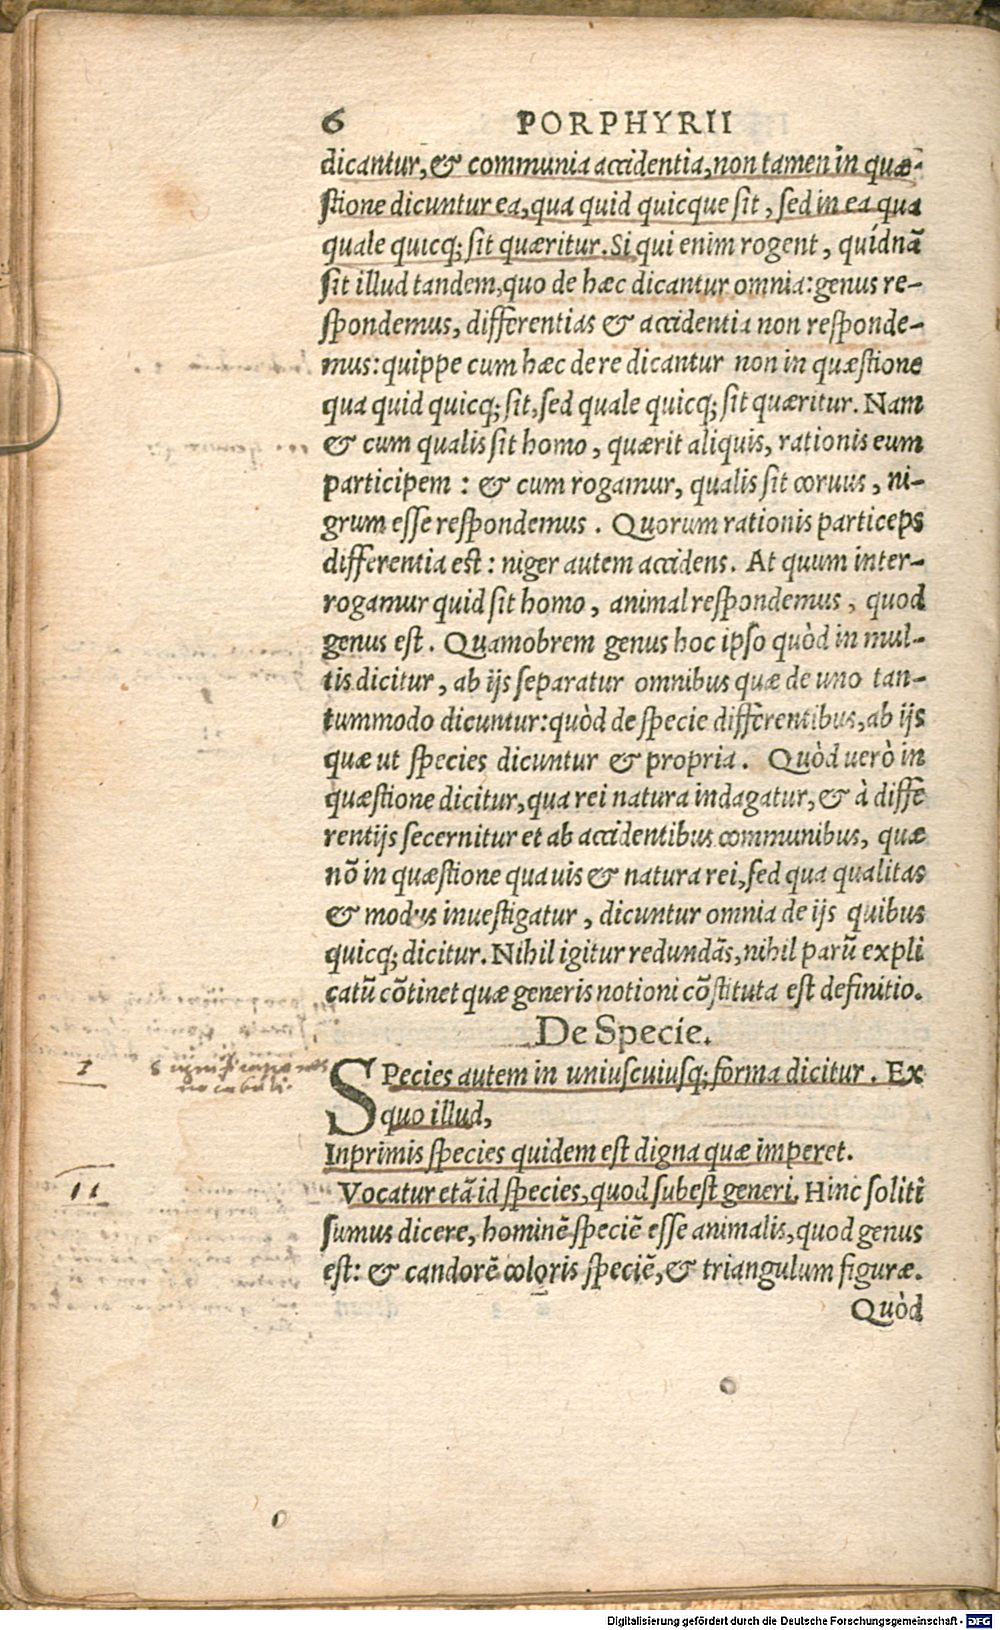 6 PORPHYRII
dicantur, & communia accidentia, non tamen in quæ-
ſtione dicuntur ea, qua quid quicque ſit, ſed in ea qua
quale quicq; ſit quæritur. Si qui enim rogent, quídnã
ſit illud tandem, quo de hæc dicantur omnia: genus re-
ſpondemus, differentias & accidentia non reſponde-
mus: quippe cum hæc de re dicantur non in quæſtione
qua quid quicq; ſit, ſed quale quicq; ſit quæritur. Nam
& cum qualis ſit homo, quærit aliquis, rationis eum
participem : & cum rogamur, qualis ſit coruus, ni-
grum eſſe reſpondemus. Quorum rationis particeps
differentia est : niger autem accidens. At quum inter-
rogamur quid ſit homo, animal reſpondemus, quod
genus est. Quamobrem genus hoc ipſo quòd in mul-
tis dicitur, ab ijs ſeparatur omnibus quæ de uno tan-
tummodo dicuntur: quòd de ſpecie differentibus, ab ijs
quæ ut ſpecies dicuntur & propria. Quòd uerò in
quæſtione dicitur, qua rei natura indagatur, & à diffe
rentijs ſecernitur et ab accidentibus communibus, quæ
nõ in quæſtione quauis & natura rei, ſed qua qualitas
& modus inueſtigatur, dicuntur omnia de ijs quibus
quicq; dicitur. Nihil igitur redundãs, nihil parũ expli
catũ cõtinet quæ generis notioni cõſtituta est definitio.
De Specie.
I
SPecies autem in uniuſcuiuſq; forma dicitur. Ex
quo illud,
Inprimis ſpecies quidem est digna quæ imperet.
II
Vocatur etã id ſpecies, quod ſubeſt generi. Hinc ſoliti
ſumus dicere, hominẽ ſpeciẽ eſſe animalis, quod genus
est: & candorẽ coloris ſpeciẽ, & triangulum figuræ.
Quòd
Digitalisierung gefördert durch die Deutsche Forschungsgemeinschaft - DFG